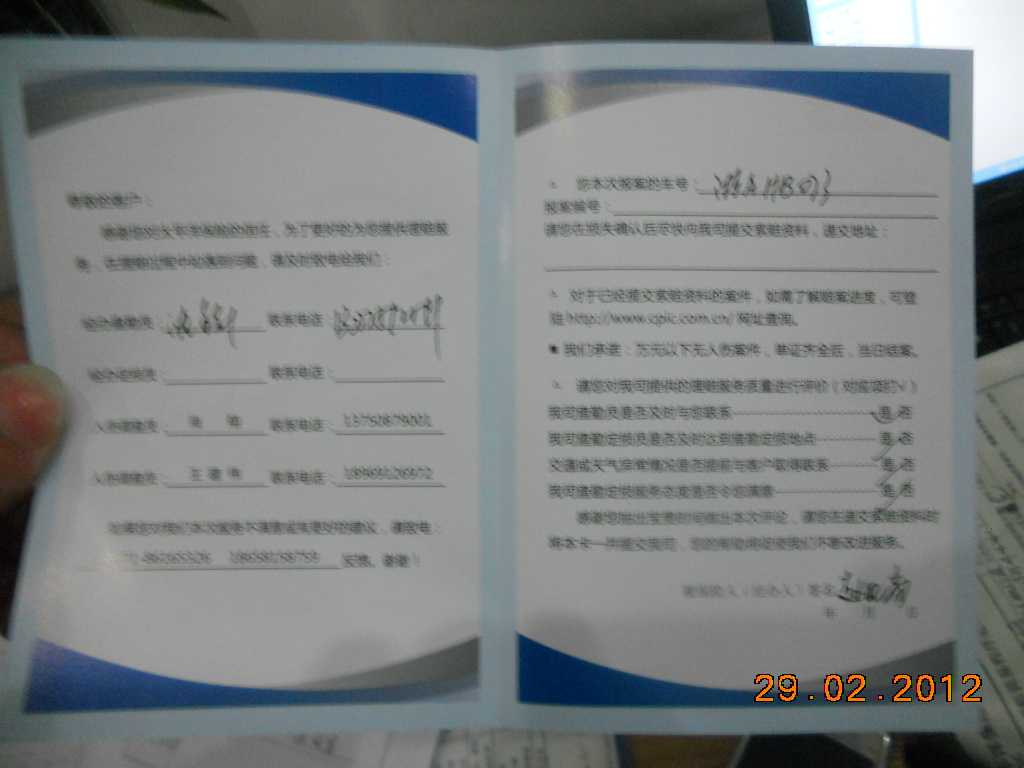 尊敬的客户：
感谢您对太平洋保险的信任，为了更好的为您提供理赔服
务，在理赔过程中如遇到问题，请及时致电给我们：
查勘员： 联系电话
定损员： 联系电话：
人伤调查员： 联系电话： 13750879001
人伤调查员： 王 伟 联系电话： 18969126972
如果您对我们本次服务不满意或有更好的建议，请致电：
-86165326 18658158759 反馈。谢谢！
您本次报案的车号：
报案编号：
请您在损失确认后尽快向我司提交索赔资料，递交地址：
对于已经提交索赔资料的案件，如需了解赔案进度，可登
陆http://www.cpic.com.cn/网址查询。
■ 我们承诺：万元以下无人伤案件，单证齐全后，当日结案。
请您对我司提供的理赔服务质量进行评价（对应项打√）
我司查勘员是否及时与您联系 是 否
我司查勘定损员是否及时达到查勘定损地点 是 否
交通或天气异常情况是否提前与客户取得联系 是 否
我司查勘定损服务态度是否令您满意 是 否
感谢您抽出宝贵时间做出本次评论，请您在递交索赔资料时
将本卡一并提交我司，您的帮助将促使我们不断改进服务。
被保险人（经办人）签名
年 月 日
29.02.2012